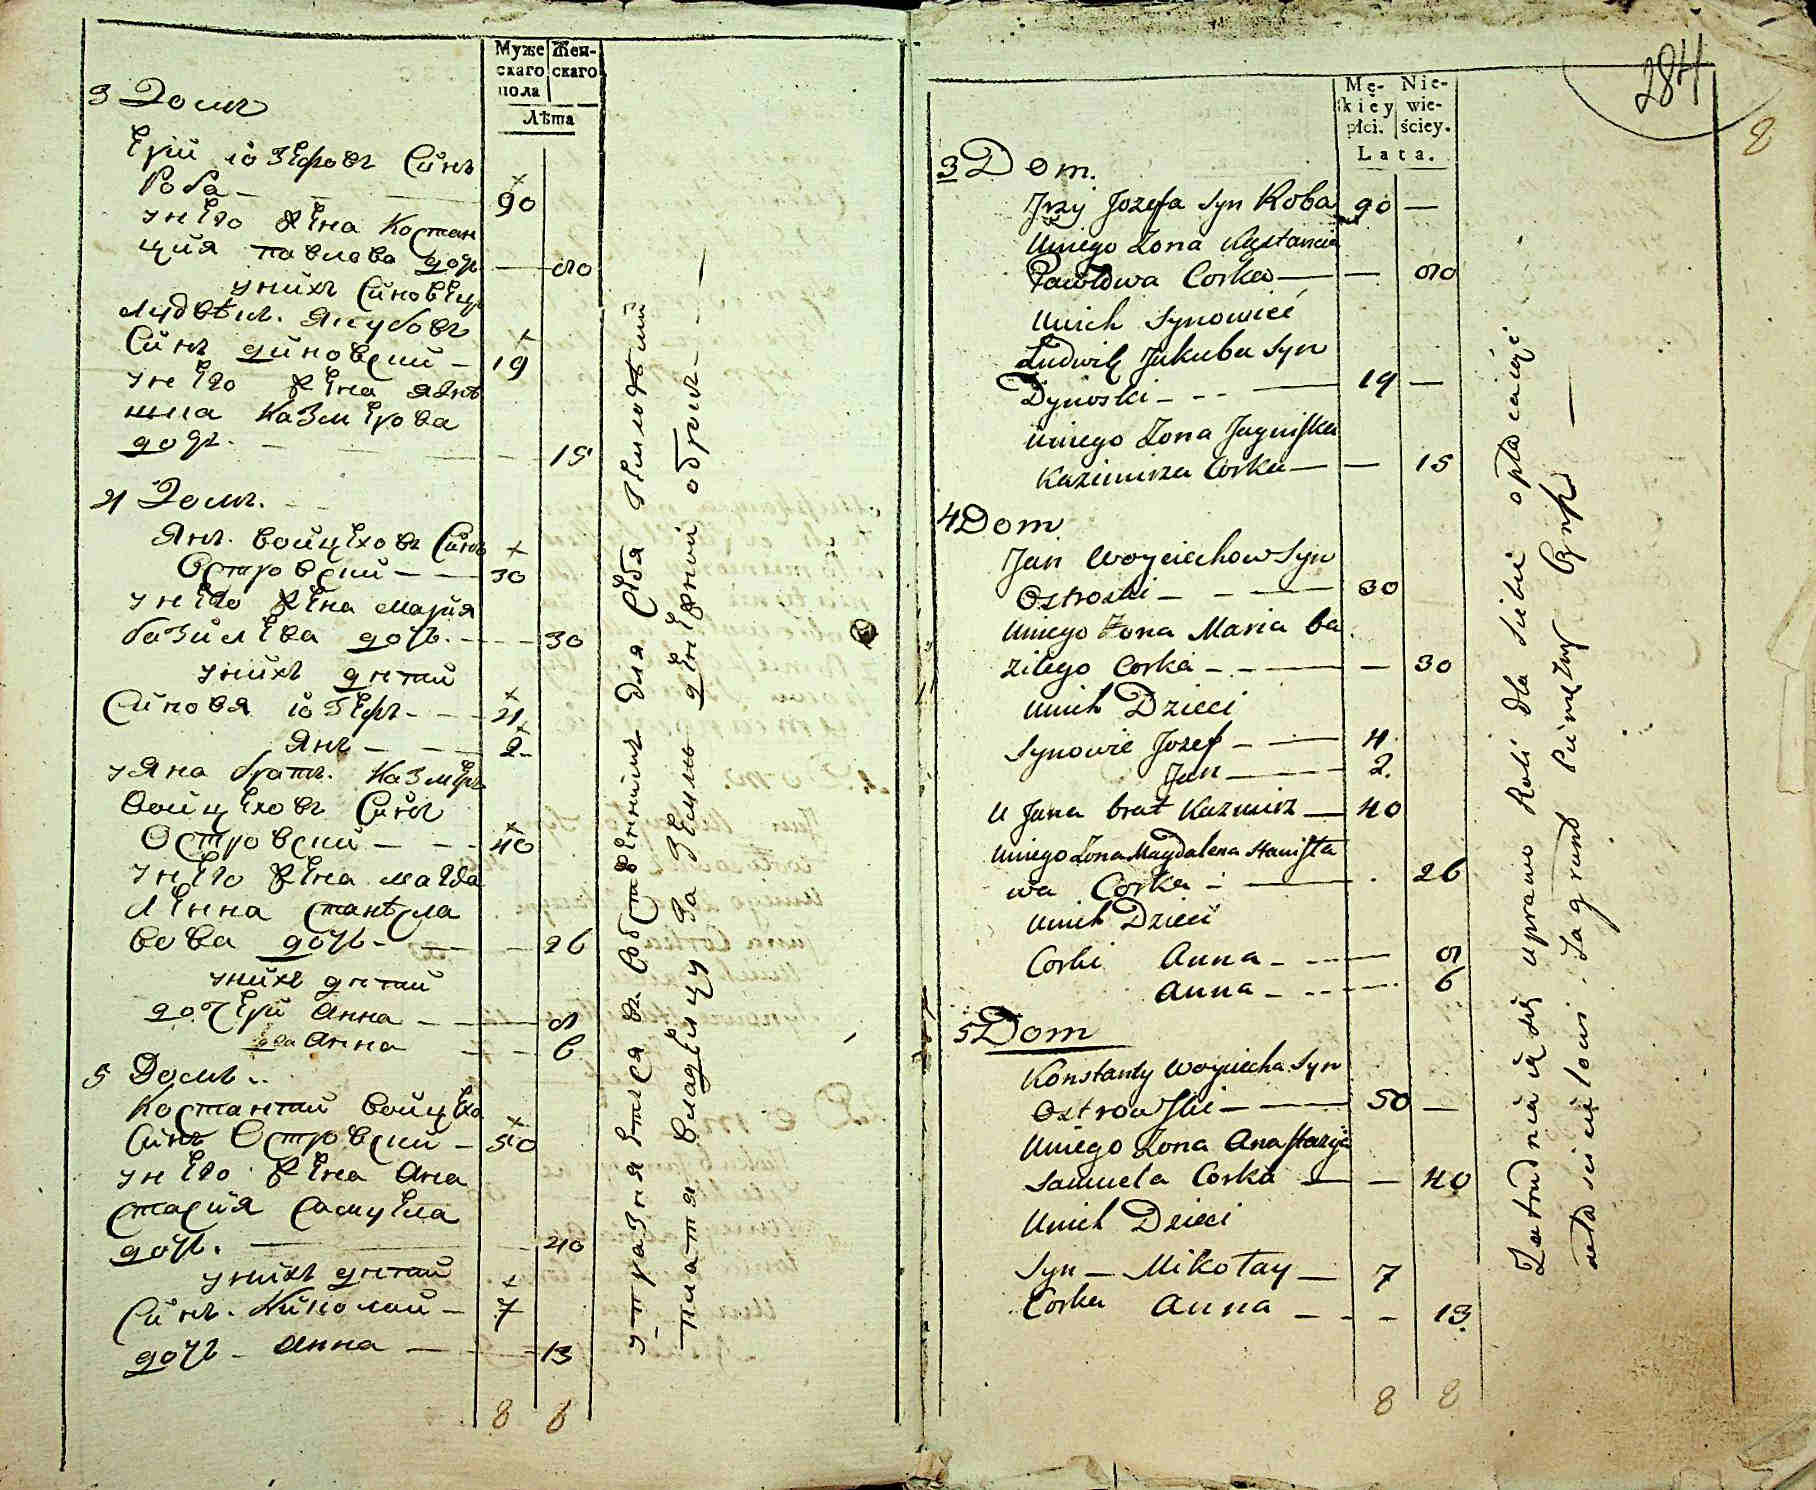 Муже Жен-
скаго скаго
пола
Лѣта
3 Домъ
Ерій іозефовъ Синъ
Роба — 90
унего жена Костан
ция павлова дочь — 80
унихъ Синовец
лудвѣкъ. якубовъ
Синъ диновский — 19
унего жена ягнѣ
шка Казмерова
дочь. — 15
4 Домъ.
Янъ. войцеховъ Синъ
Островский — 30
унего жена мария
базилева дочь. — 30
унихъ детий
Синовя іозефъ — 4
Янъ — 2
уяна братъ. Казмеръ
войцеховъ Синъ
Островский — 40
унего жена магда
лѣнна станѣсла
вова дочь — 26
унихъ детий
дочерий анна — 8
анна — 6
5 Домъ..
Костантий войцеха
Синъ Островский — 50
унего жена ана
стасия самуела
дочь. — 40
унихъ детий
Синъ. Николай — 7
дочь — анна — 13
8 8
упражняется в собственнимъ для себя земледѣлий
платя владелцу за землю денежний оброкъ —
284
8
Mę- Nie-
skiey wie-
płci. ściey.
Lata.
3 Dom.
Jrzy Jozefa Syn Roba 90 —
Uniego Zona Kąstancia
Pawłowa Corka — — 80
Unich Synowiec
Ludwik Jakuba Syn
Dynoski — 19 —
Uniego Zona Jagniska
Kazimirza Corka — — 15
4 Dom
Jan Woyciechow Syn
Ostroski — 30
Uniego Zona Maria ba
zilego Corka — — 30
Unich Dzieci
Synowie Jozef — 4.
Jan — 2.
U Jana brat Kazmirz — 40
Uniego Zona Magdalena Stanisła
wa Corka — 26
Unich Dzieci
Corki Anna — 8
Anna — 6
5 Dom
Konstanty Woyciecha Syn
Ostrowski — 50 —
Uniego Zona Anastazya
Samuela Corka — — 40
Unich Dzieci
Syn — Mikołay — 7
Corka Anna — 13.
8 8
Zatrudnia się uprawą Roli dla siebie opłacaiąc
właścicielowi za grunt pieniężny Czynsz —